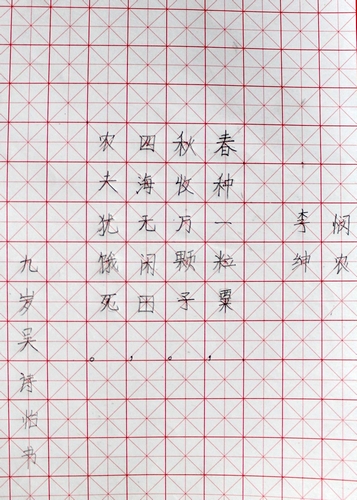 悯农
李绅
春种一粒粟，
秋收万颗子。
四海无闲田，
农夫犹饿死。
九岁吴诗怡书